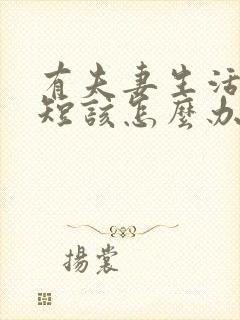 有夫妻生活
短該怎麼办
揚裳